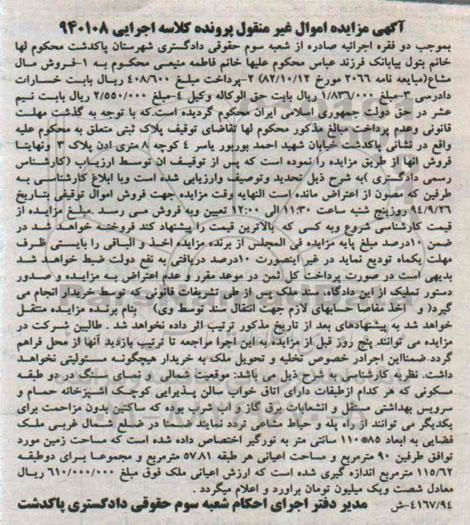 آگهی مزایده اموال غیر منقول پرونده کلاسه اجرایی ۹۴۰۱۰۸
بموجب دو فقره اجرائیه صادره از شعبه سوم حقوقی دادگستری شهرستان پاکدشت محکوم لها
خانم بتول بیابانک فرزند عباس محکوم علیها خانم فاطمه منیعی محکوم به ۱-فروش مال
مشاع(مبایعه نامه ۲۰۶۶ مورخ ۸۲/۱۰/۱۲) ۲-پرداخت مبلغ ۴۰۸/۶۰۰ ریال بابت خسارات
دادرسی ۳-مبلغ ۱/۸۳۶/۰۰۰ ریال بابت حق الوکاله وکیل ۴-مبلغ ۲/۵۵۰/۰۰۰ بابت نیم
عشر در حق دولت جمهوری اسلامی ایران محکوم گردیده است.که با توجه به گذشت مهلت
قانونی وعدم پرداخت مبالغ مذکور محکوم لها تقاضای توقیف پلاک ثبتی متعلق به محکوم علیه
واقع در نشانی پاکدشت خیابان شهید احمد بوربور یاسر ۴ کوچه ۸متری لدن پلاک ۳ ونهایتا
فروش آنها از طریق مزایده را نموده است که پس از توقیف ان توسط ارزیاب (کارشناس
رسمی دادگستری )به شرح ذیل تحدید وتوصیف وارزیابی شده است وبا ابلاغ کارشناسی به
طرفین که مصون از اعتراض مانده است النهایه وقت مزایده جهت فروش اموال توقیفی بتاریخ
۹۴/۹/۲۶ روزپنج شنبه ساعت ۱۱:۳۰ الی ۱۲:۰۰ تعیین وبه فروش می رسد .مبلغ مزایده از
قیمت کارشناسی شروع وبه کسی که بالاترین قیمت را پیشنهاد کند فروخته خواهد شد.در
ضمن ۱۰درصد مبلغ پایه مزایده فی المجلس از برنده مزایده اخذ و الباقی را بایستی ظرف
مهلت یکماه تودیع نماید در غیر اینصورت ۱۰درصد دریافتی به نفع دولت ضبط خواهد شد
بدیهی است در صورت پرداخت کل ثمن در موعد مقرر و عدم اعتراض به مزایده و صدور
دستور تملیک از این دادگاه سند ملک پس از طی تشریفات قانونی که توسط خریدار انجام می
گیرد( و اخذ مفاصا حسابهای لازم جهت انتقال سند توسط وی) بنام برنده مزایده منتقل
خواهد شد به پیشنهادهای بعد از تاریخ مذکور ترتیب اثر داده نخواهد شد . طالبین شرکت در
مزایده می توانند پنج روز قبل از مزایده به این اجرا مراجعه تا ترتیب بازدید آنها از محل فراهم
گردد.ضمنااین اجرادر خصوص تخلیه و تحویل ملک به خریدار هیچگونه مسئولیتی نخواهد
داشت. نظریه کارشناسی به شرح ذیل می باشد: موقعیت شمالی و نمای سنگ در دو طبقه
مسکونی که هر کدام ازطبقات دارای اتاق خواب سالن پذیرایی کوچک اشپزخانه حمام و
سرویس بهداشتی مستقل و انشعابات برق گاز و اب شرب بوده که ساکنین بدون مزاحمت برای
یکدیگر می توانند از راه پله و حیاط مشاعی تردد نمایند ضمنا در ضلع شمال غربی ملک
فضایی به ابعاد ۸۵*۱۱۰ سانتی متر به نورگیر اختصاص داده شده است که مساحت زمین مورد
توافق طرفین ۹۰ مترمربع و مساحت اعیانی هر طبقه ۵۷.۸۱ مترمربع و مجموعا برای دوطبقه
۱۱۵/۶۲ مترمربع اندازه گیری شده است که ارزش اعیانی ملک فوق مبلغ ۶۱۰/۰۰۰/۰۰۰ ریال
معادل شصت ویک میلیون تومان براورد و اعلام میگردد .
۴۱۶۷/۹۴-ش مدیر دفتر اجرای احکام شعبه سوم حقوقی دادگستری پاکدشت